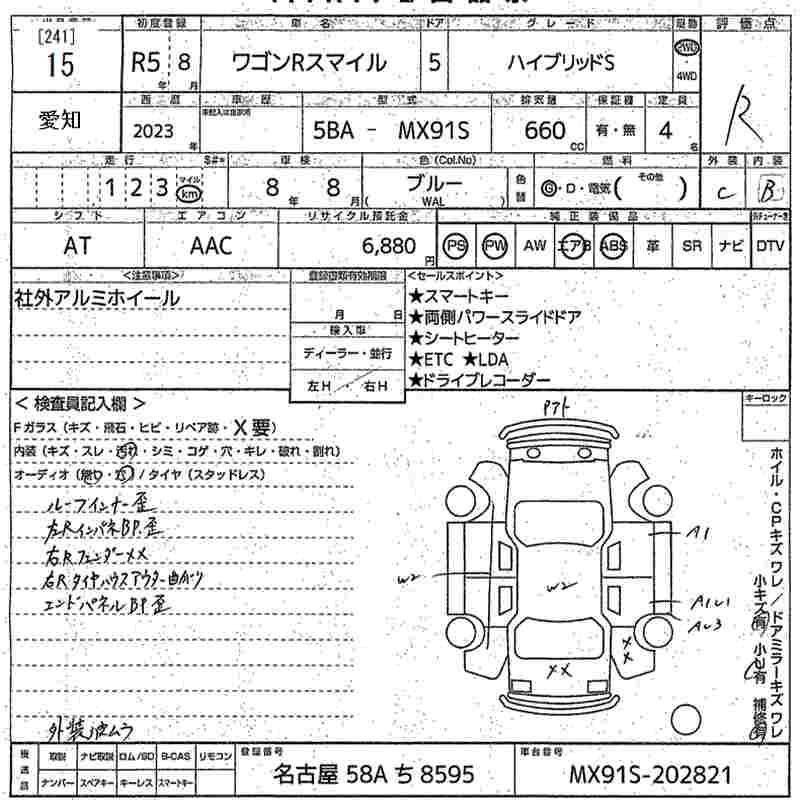 [241]
15
初度登録
車名
ドア
グレード
駆動
評価点
R5 8
年 月
ワゴンRスマイル
5
ハイブリッドS
2WD
4WD
R
愛知
西暦
車歴
型式
排気量
保証書
定員
2023
年
5BA - MX91S
660
CC
有・無
4
名
走行
S#*
車検
色 (Col.No)
燃料
外装
内装
1 2 3
マイル
km
8 8
年 月
ブルー
( WAL )
色替
G・D・電気( その他 )
C
B
シフト
エアコン
リサイクル預託金
純正装備品
AT
AAC
6,880
円
PS
PW
AW
エアB
ABS
革
SR
ナビ
DTV
<注意事項>
社外アルミホイール
登録書類有効期限
月 日
輸入車
ディーラー・並行
左H / 右H
<セールスポイント>
★スマートキー
★両側パワースライドドア
★シートヒーター
★ETC ★LDA
★ドライブレコーダー
キーロック
< 検査員記入欄 >
Fガラス (キズ・飛石・ヒビ・リペア跡・X要)
内装 (キズ・スレ・汚れ・シミ・コゲ・穴・キレ・破れ・割れ)
オーディオ (無り・
) / タイヤ (スタッドレス)
ルーフインナー歪
左RインパネBP.歪
右Rフェンダー××
右Rタイヤハウスアウター曲がり
エンドパネルBP歪
外装波ムラ
A1
W2
W2
A1U1
AU3
××
××
ホイル・CPキズ ワレ / ドアミラーキズ ワレ
小キズ 有 小U 有 補修
搬送品
取説
ナビ取説
ロム/SD
B-CAS
リモコン
ナンバー
スペアキー
キーレス
スマートキー
登録番号
名古屋 58A ち 8595
車台番号
MX91S-202821